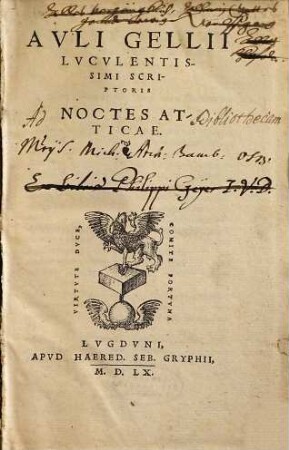 AVLI GELLII
LVCVLENTIS-
SIMI SCRI-
PTORIS
NOCTES AT-
TICAE.
Ad Bibliothecam
Mich. Bamb.
Philippi Geyer I.V.D.
VIRTVTE DVCE,
COMITE FORTVNA
LVGDVNI,
APVD HAERED. SEB. GRYPHII,
M. D. LX.